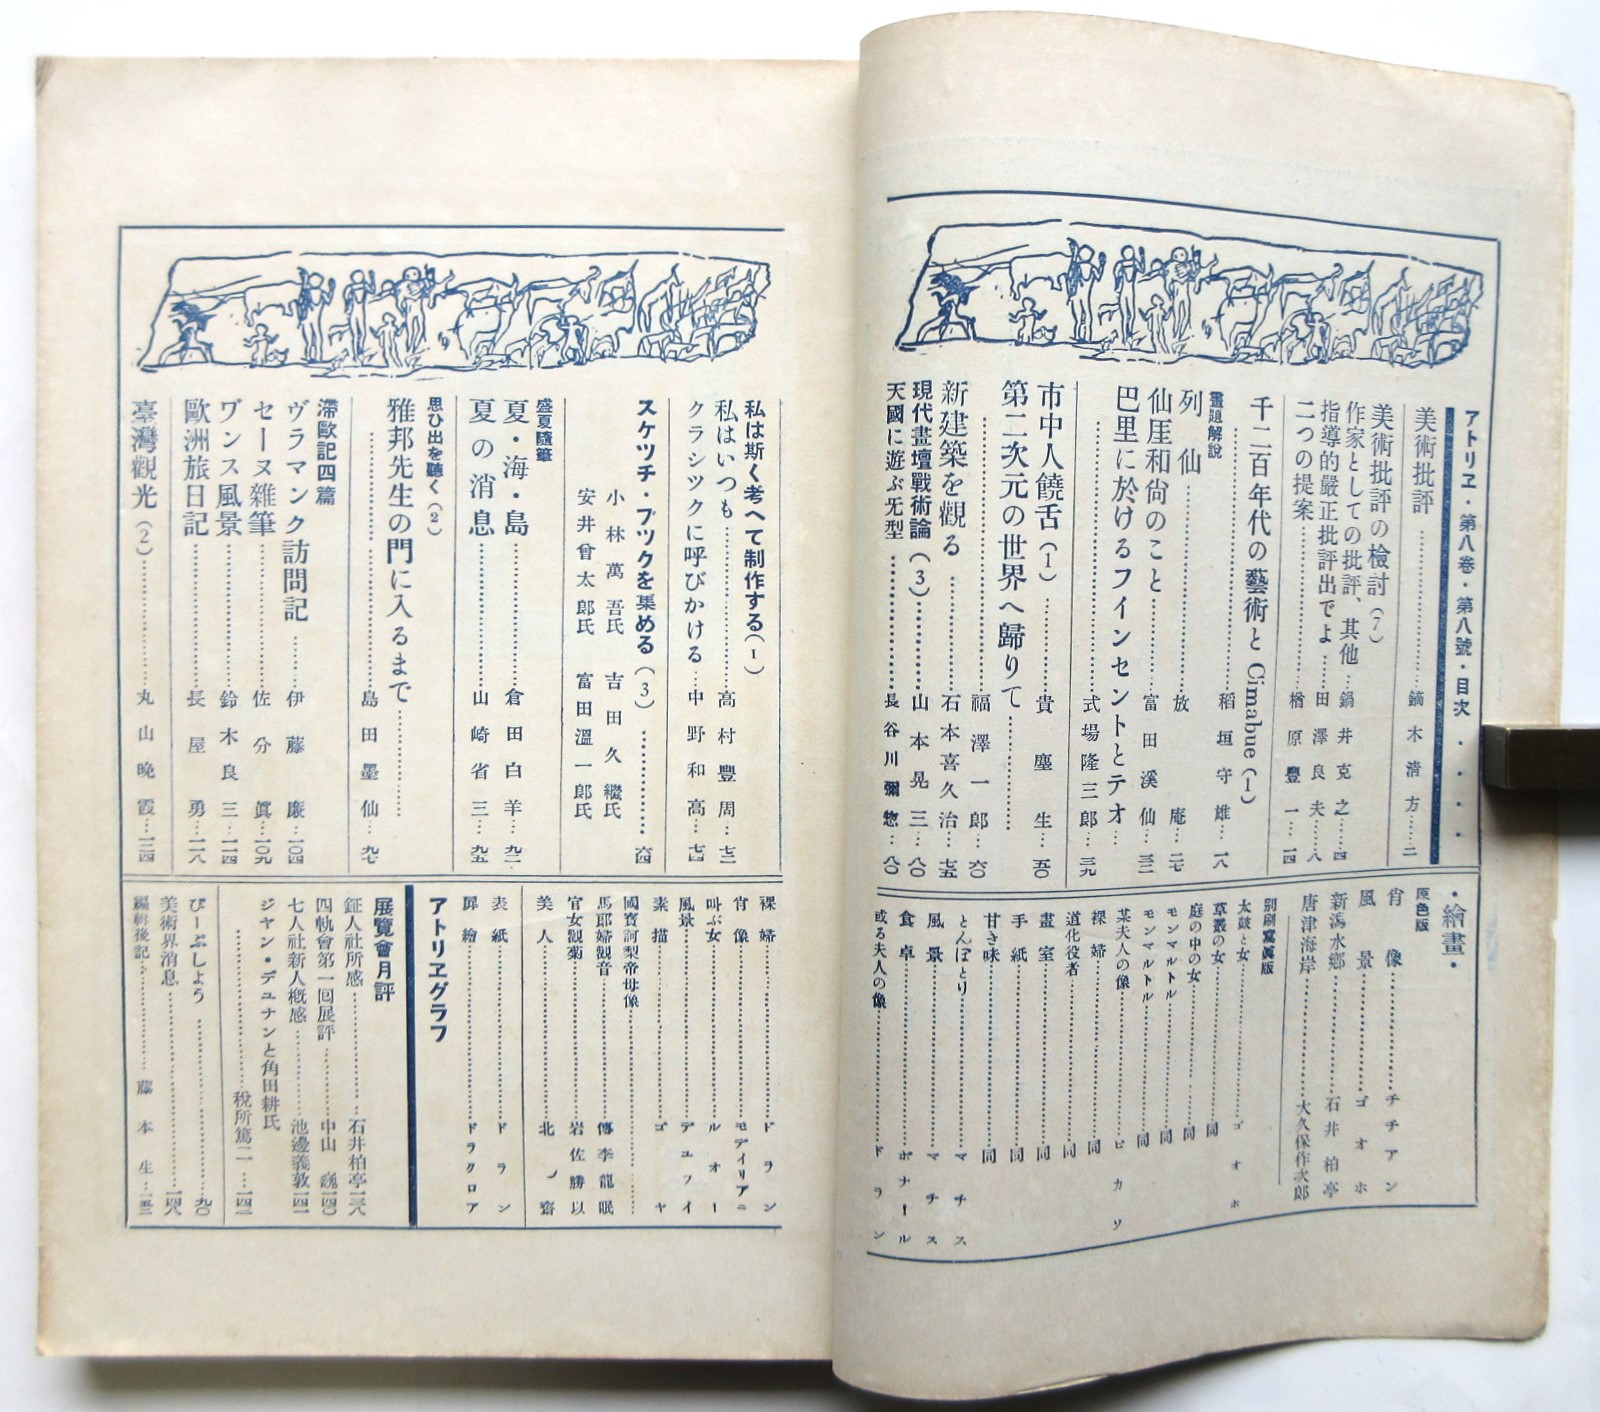 アトリヱ・第八卷・第八號・目次・・・・
美術批評……鏑木淸方……二
美術批評の檢討(7)
作家としての批評、其他…鍋井克之…四
指導的嚴正批評出でよ…田澤良夫…八
二つの提案……楢原豐一…一四
千二百年代の藝術と Cimabue (1)
……稻垣守雄…一八
畫題解說
列仙……放庵…二七
仙厓和尙のこと……富田溪仙…三三
巴里に於けるフインセントとテオ
……式場隆三郎…三九
市中人饒舌(1)……貴塵生…五〇
第二次元の世界へ歸りて……
……福澤一郎…六〇
新建築を觀る……石本喜久治…七五
現代畫壇戰術論(3)……山本晃三…八〇
天國に遊ぶ旡型……長谷川彌惣…八〇
・繪畫・
原色版
肖像……チチアン
風景……ゴオホ
新潟水鄕……石井柏亭
唐津海岸……大久保作次郎
別刷寫眞版
太鼓と女……ゴオホ
草叢の女……同
庭の中の女……同
モンマルトル……同
モンマルトル……同
某夫人の像……ピカソ
裸婦……同
道化役者……同
畫室……同
手紙……同
甘き味……同
とんぼとり……マチス
風景……マチス
食卓……ボナール
或る夫人の像……ドラン
私は斯く考へて制作する(1)
私はいつも……高村豐周…七三
クラシツクに呼びかける…中野和高…七四
スケツチ・ブツクを集める(3)……六四
小林萬吾氏 吉田久繼氏
安井曾太郎氏 富田溫一郎氏
盛夏隨筆
夏・海・島……倉田白羊…九二
夏の消息……山崎省三…九五
思ひ出を聽く(2)
雅邦先生の門に入るまで……
……島田墨仙…九七
滯歐記四篇
ヴラマンク訪問記……伊藤廉…一〇四
セーヌ雜筆……佐分眞…一〇九
ヷンス風景……鈴木良三…一一四
歐洲旅日記……長屋勇…一一八
臺灣觀光(2)……丸山晩霞…一二四
裸婦……ドラン
肖像……モディリアニ
叫ぶ女……ルオー
風景……デュフイ
素描……ゴヤ
國寶訶梨帝母像……
馬郎婦觀音……傳李龍眠
官女觀菊……岩佐勝以
美人……北齋
表紙……ドラン
扉繪……ドラクロア
アトリヱグラフ
展覽會月評
鉦人社所感……石井柏亭一三八
四軌會第一回展評……中山巍一四〇
七人社新人槪感……池邊義敦一四一
ジヤン・デユナンと角田耕氏
……稅所篤二…一四二
びーぶしよう……九〇
美術界消息……一四八
編輯後記……藤本生…一五二